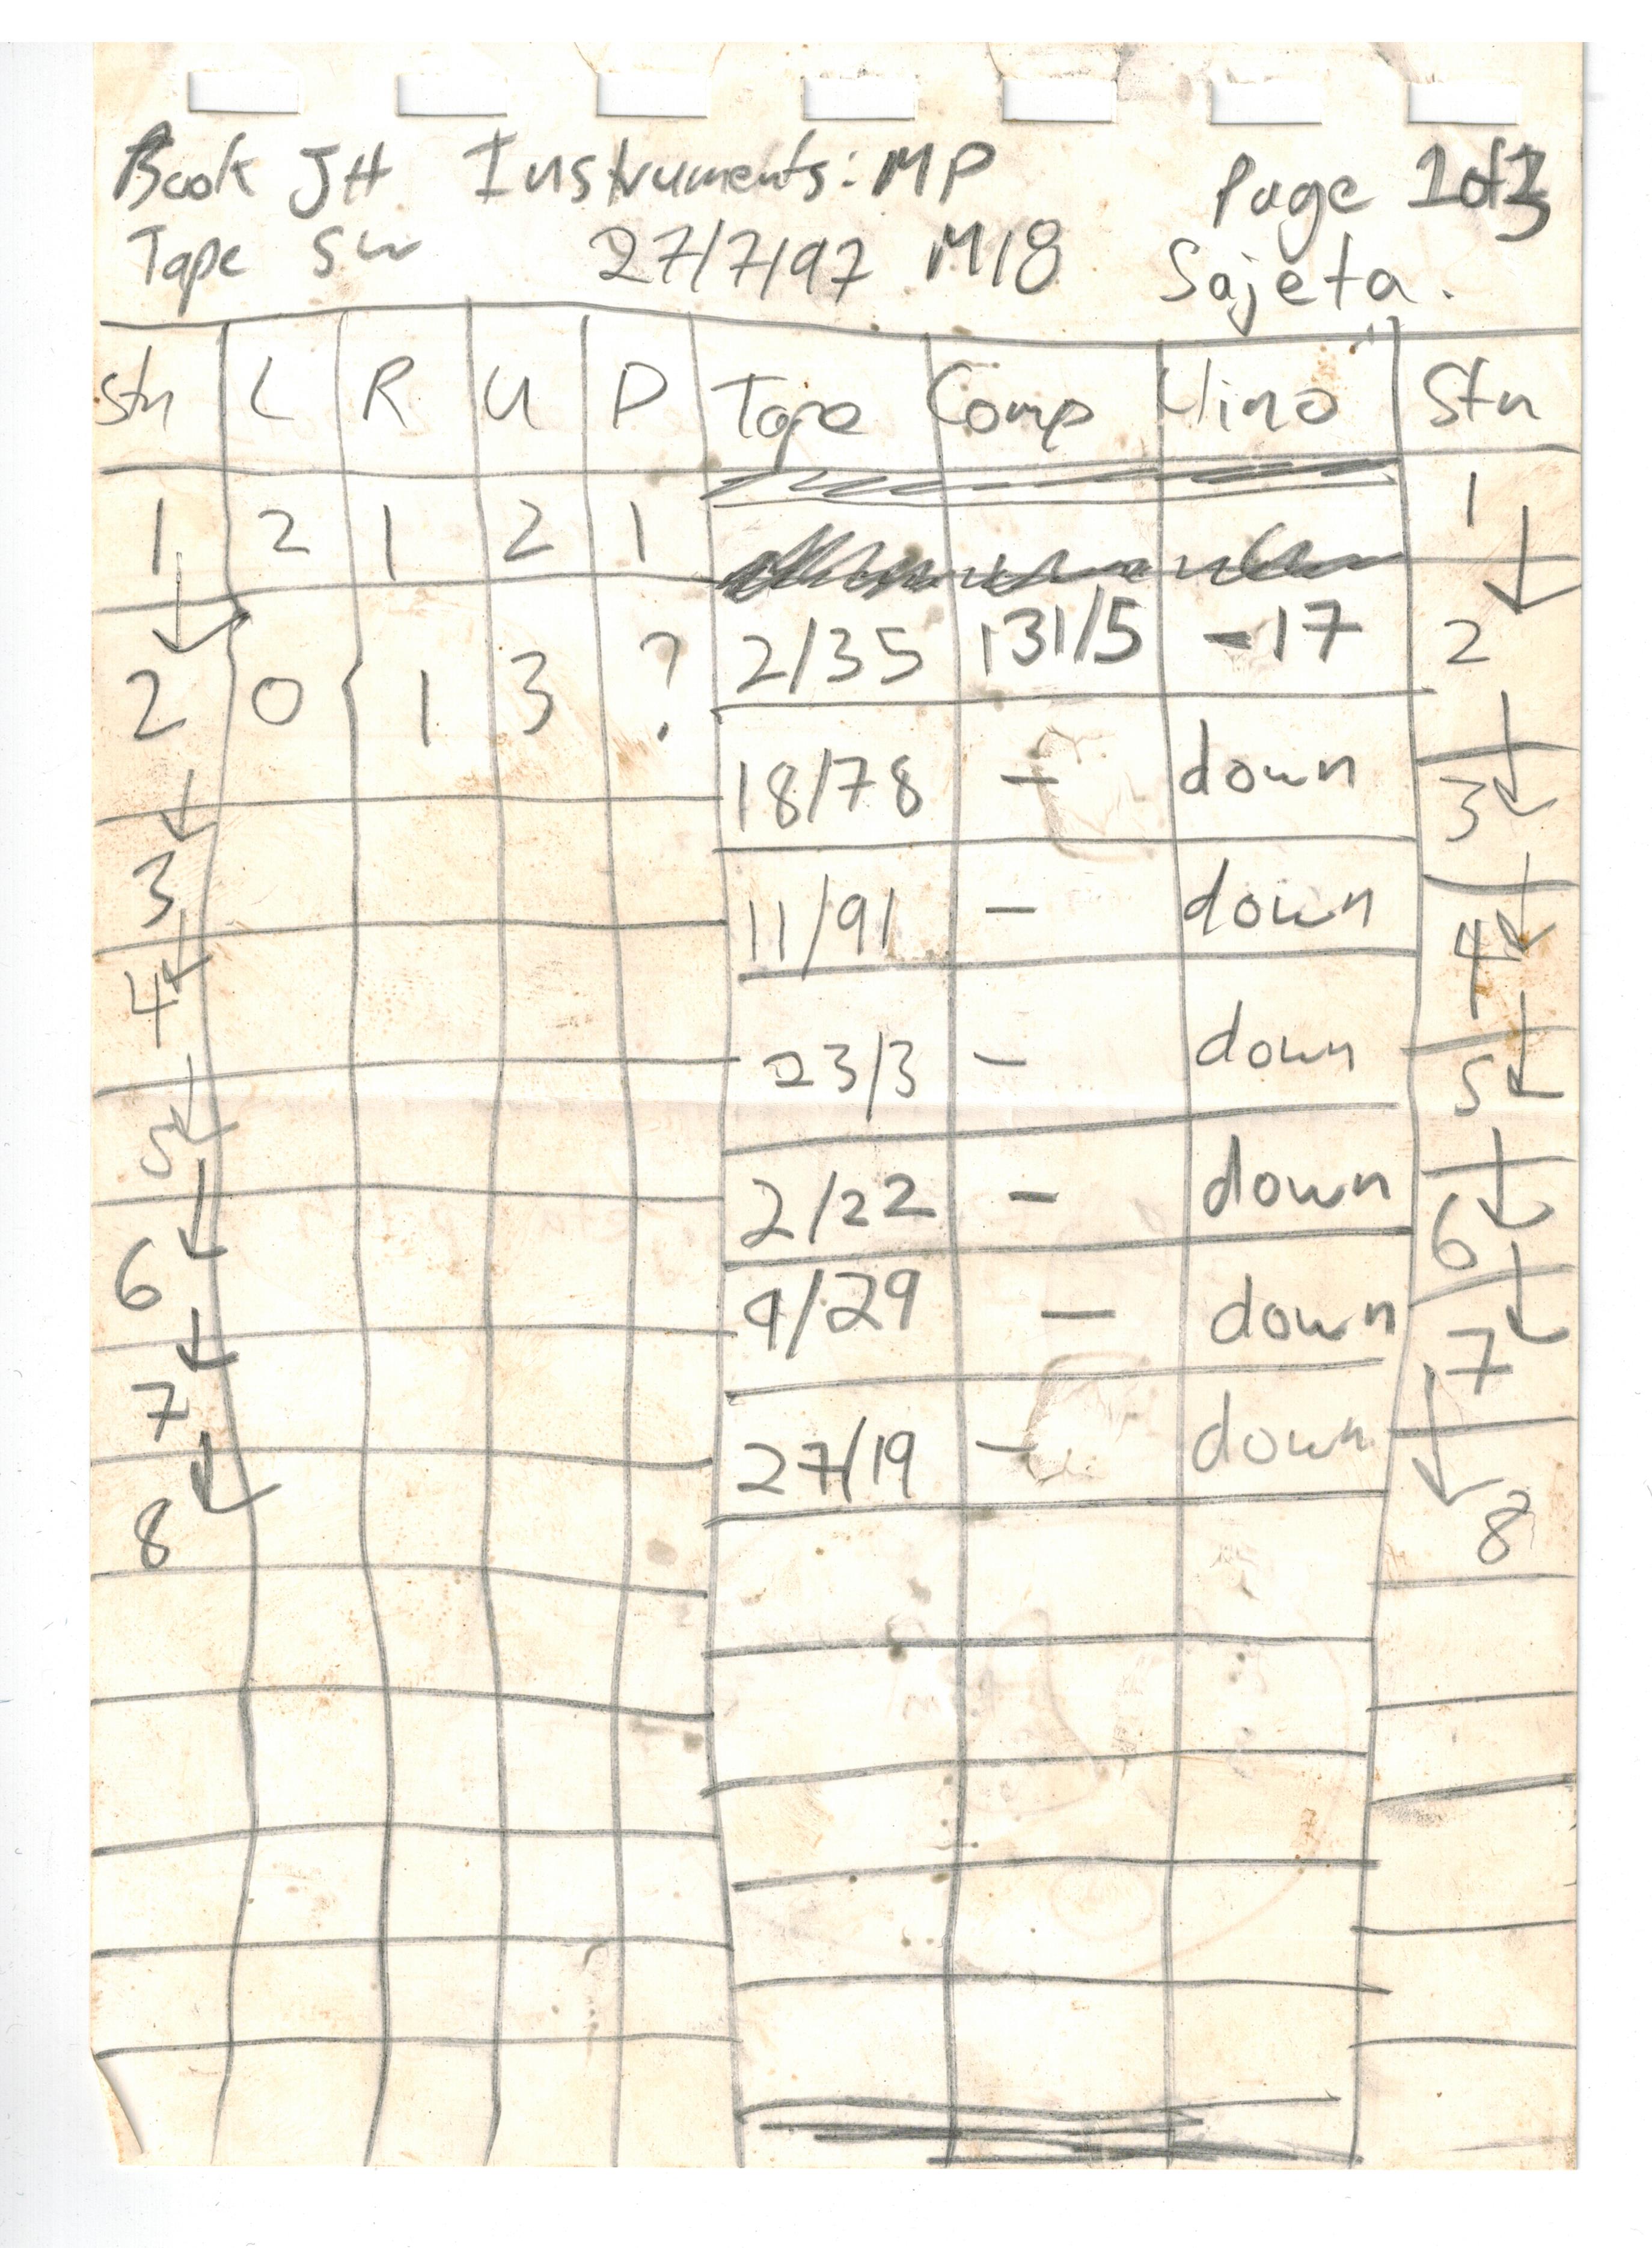 Book JH Instruments: MP Page 1 of 3
Tape SW 27/7/97 M18 Sajeta.
Stn L R U D Tape Comp Clino Stn
1 2 1 2 1 1
2 0 1 3 ? 2/35 131/5 -17 2
3 18/78 - down 3
4 11/91 - down 4
5 23/3 - down 5
6 2/22 - down 6
7 9/29 - down 7
8 27/19 - down 8